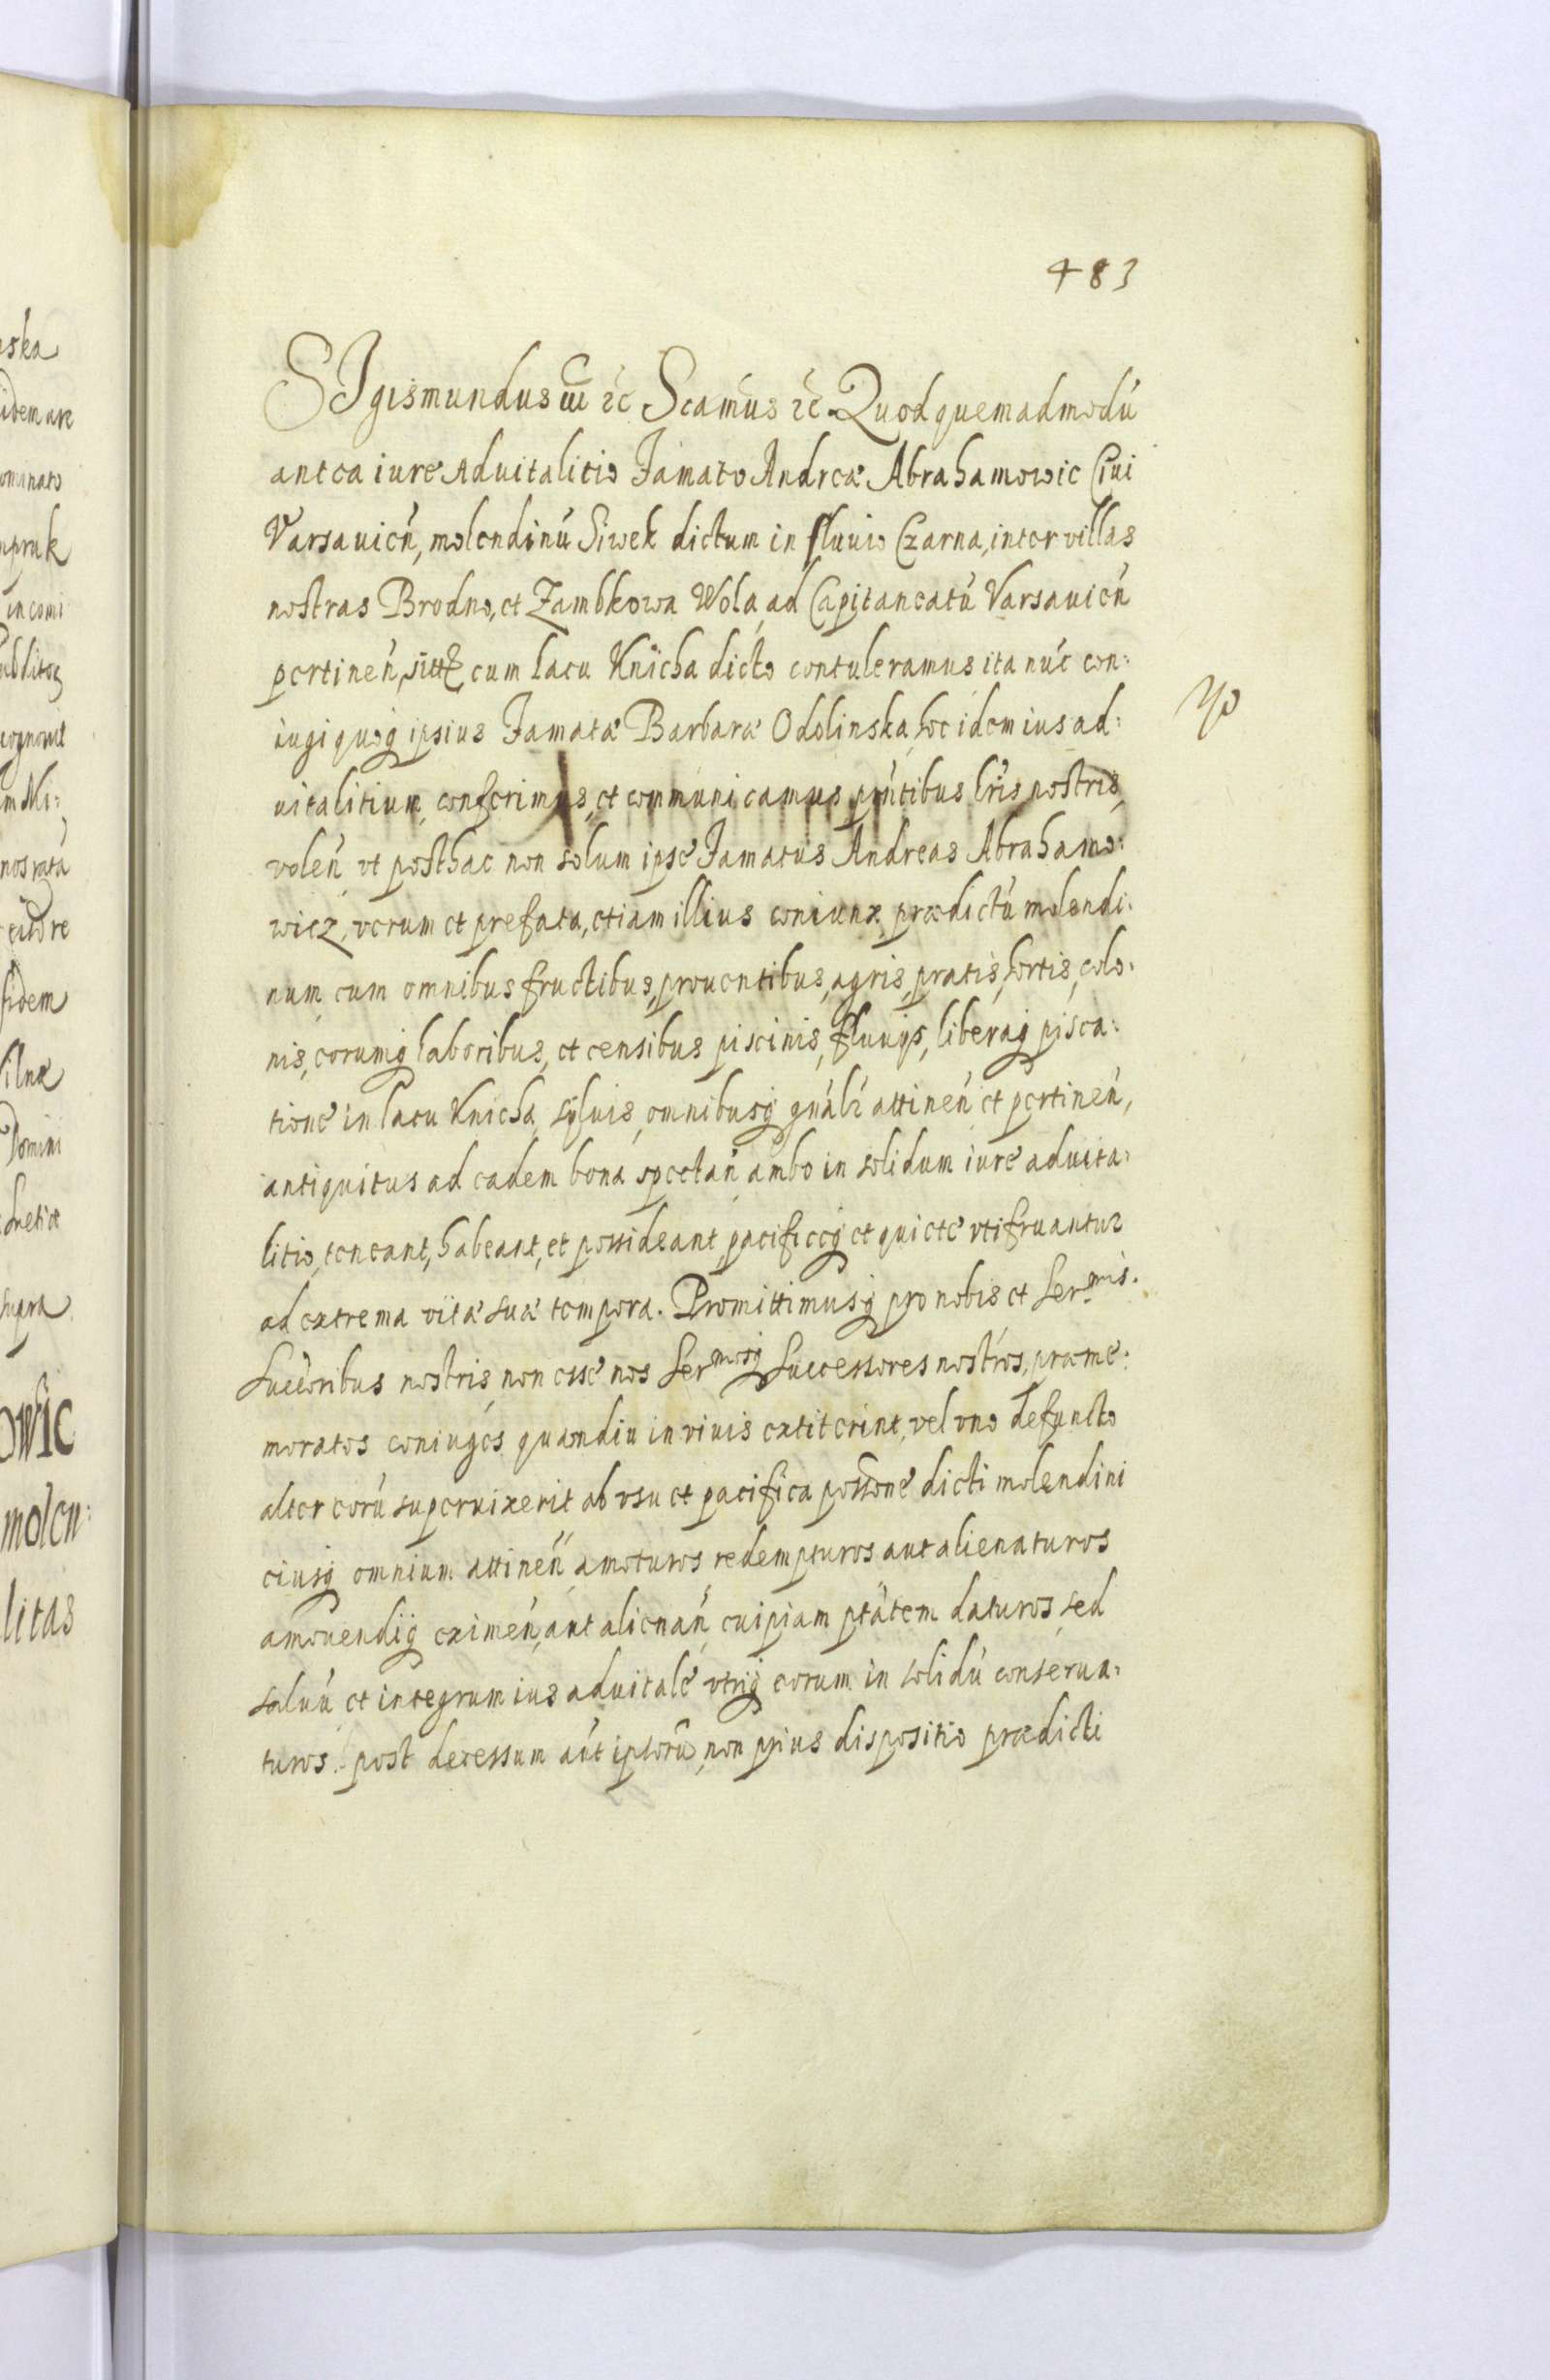 483
SIgismundus III ꝛc Scimus ꝛc Quod quemadmodũ
antea iure aduitalitio Famato Andreæ Abrahamowic Ciui
Varsauień, molendinũ Siwek dictum in fluuio Czarna, inter villas
nostras Brodno, et Zambkowa Wola, ad Capitaneatũ Varsauień
pertineń, sitt, cum lacu Knicha dicto contuleramus ita nũc con:
iugi quoq ipsius Famatæ Barbaræ Odolinska, hoc idem ius ad:
uitalitium, conferimus, et communicamus pñtibus lr̃is nostris,
voleń vt posthac non solum ipse Famatus Andreas Abrahamo:
wicz, verum et prefata, etiam illius coniunx, prædictũ molendi:
num, cum omnibus fructibus, prouentibus, agris, pratis, hortis, colo:
nis, eorumq laboribus, et censibus piscinis, fluuijs, liberaq pisca:
tione in lacu Knicha, syluis, omnibusq gnãlr attineń et pertineń,
antiquitus ad eadem bona spectań ambo in solidum iure aduita:
litio, teneant, habeant, et possideant, pacificeq et quiete vtifruantur
ad extrema vitæ suæ tempora. Promittimusq pro nobis et Ser.mis.
Succoribus nostris, non esse nos Sermosq Successores nostros, præme:
moratos coniuges quamdiu in viuis extiterint, vel vno defuncto
alter eorũ superuixerit ab vsu et pacifica possone dicti molendini
eiusq omnium attineń, amoturos redempturos aut alienaturos
amouendiq eximeń, aut alienań, cuipiam ptãtem daturos, sed
saluũ et integrum ius aduitale vtriq eorum in solidũ conserua:
turos. post decessum aũt ipsorũ, non prius dispositio prædicti